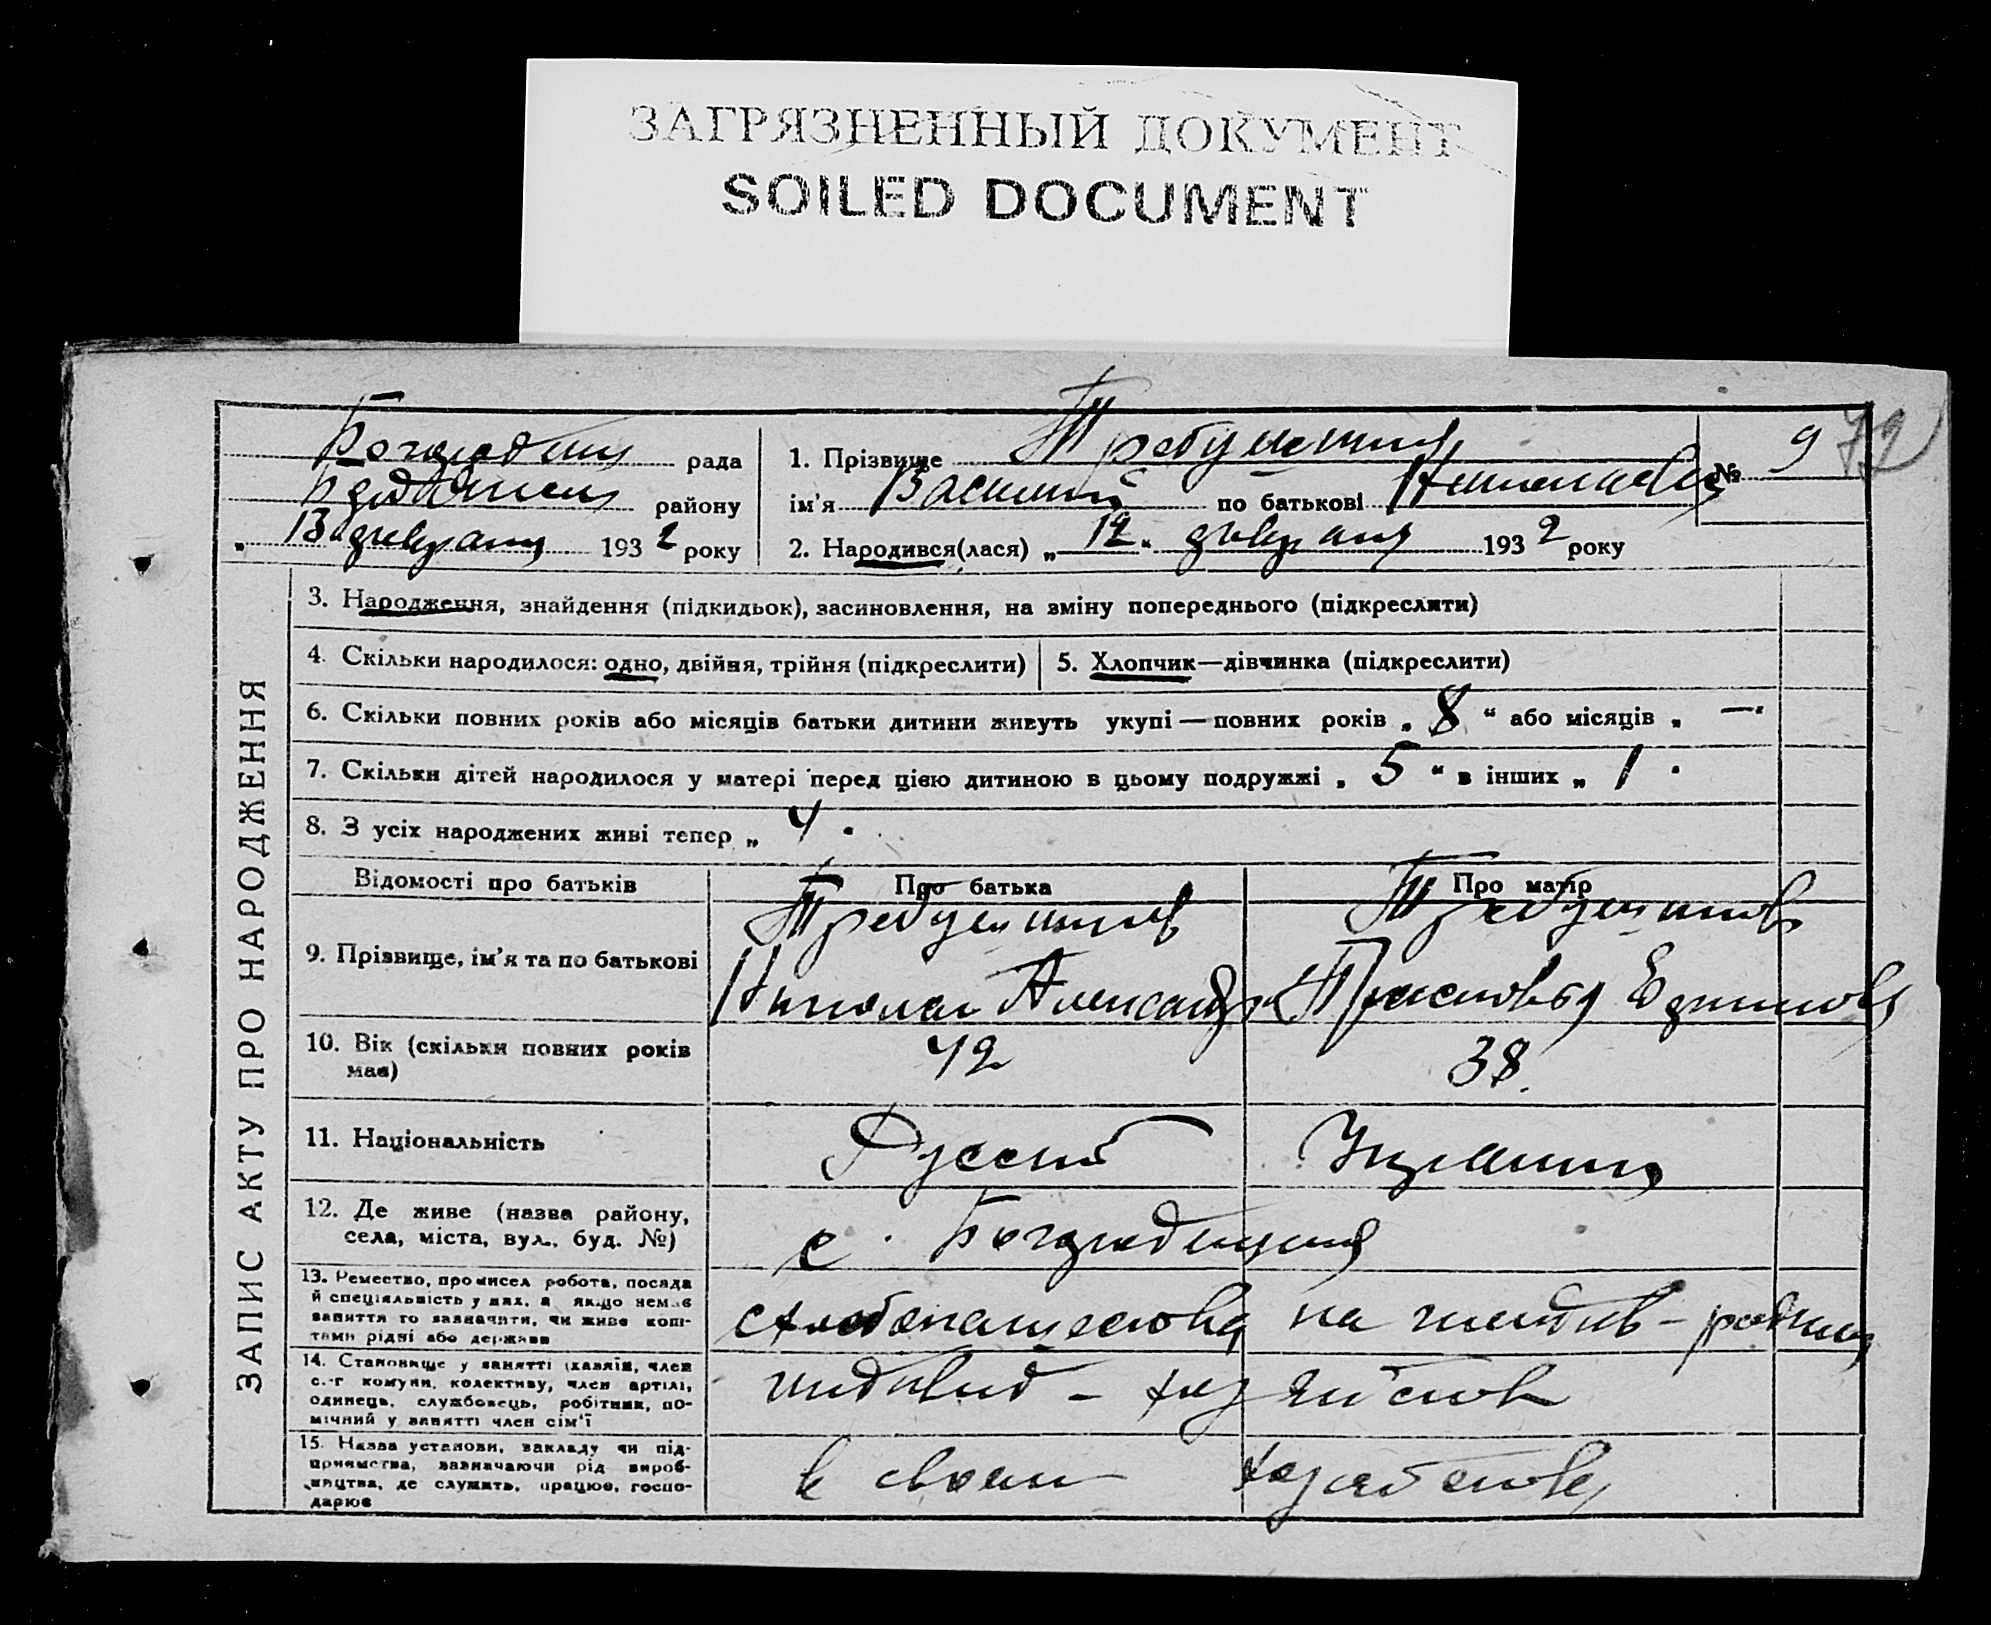 ЗАГРЯЗНЕННЫЙ ДОКУМЕНТ
SOILED DOCUMENT
рада
району
13 февраля 1932 року
1. Прізвище
ім'я Василий по батькові Николаевич
№ 9
72
2. Народився(лася) „12“ февраля 1932 року
ЗАПИС АКТУ ПРО НАРОДЖЕННЯ
3. Народження, знайдення (підкидьок), засиновлення, на зміну попереднього (підкреслити)
4. Скільки народилося: одно, двійня, трійня (підкреслити)
5. Хлопчик—дівчинка (підкреслити)
6. Скільки повних років або місяців батьки дитини живуть укупі — повних років „ 8 “ або місяців „ —
7. Скільки дітей народилося у матері перед цією дитиною в цьому подружжі „ 5 “ в інших „ 1
8. З усіх народжених живі тепер „ 4
Відомості про батьків
Про батька
Про матір
9. Прізвище, ім'я та по батькові
Николай
10. Вік (скільки повних років
має)
42
38.
11. Національність
Русский
12. Де живе (назва району,
села, міста, вул., буд. №)
с.
13. Ремество, промисел робота, посада
й спеціяльність у них, а якщо немає
заняття то зазначити, чи живе кош-
тами рідні або держави
на
14. Становище у занятті (хазяїн, член
с.-г комуни, колективу, член артілі,
одинець, службовець, робітник, по-
мічний у занятті член сім'ї
15. Назва установи, закладу чи під-
приємства, зазначаючи рід вироб-
ництва, де служить, працює, госпо-
дарює
в своем хозяйстве